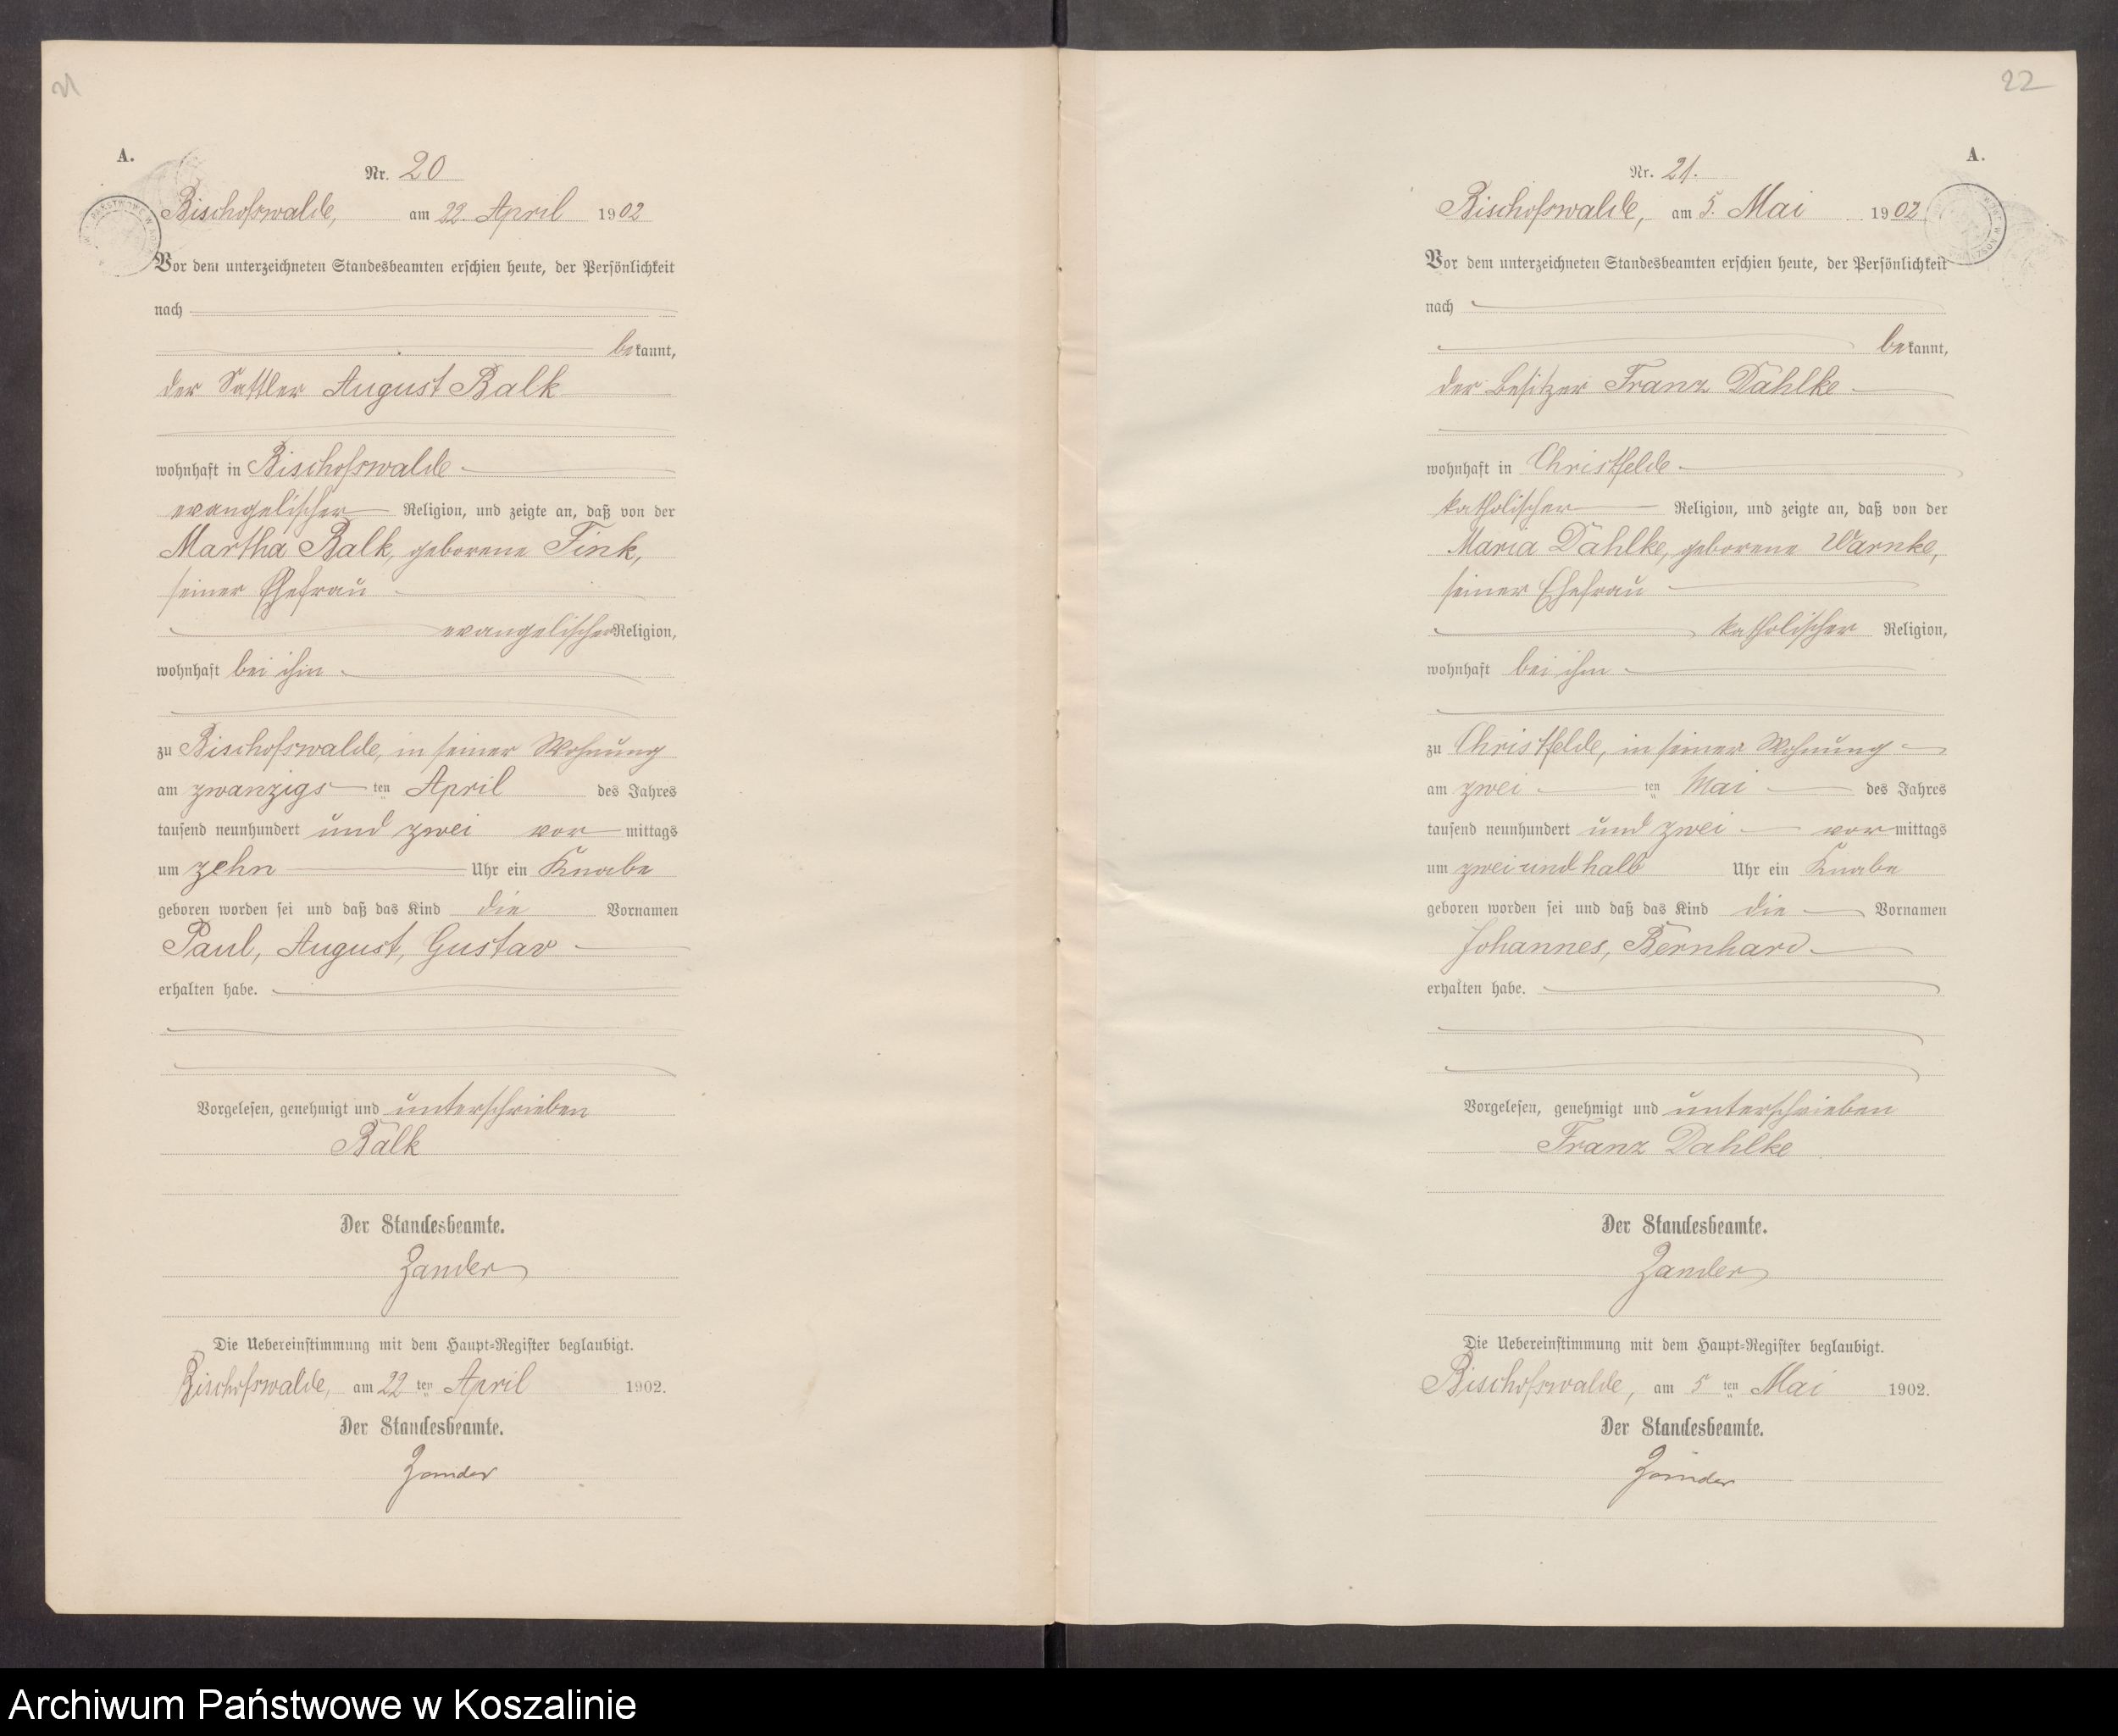 21
A.
Nr. 20
Bischofswalde, am 22. April 1902
Vor dem unterzeichneten Standesbeamten erschien heute, der Persönlichkeit
nach
bekannt,
der Sattler August Balk
wohnhaft in Bischofswalde
evangelischer Religion, und zeigte an, daß von der
Martha Balk, geborene Fink,
seiner Ehefrau
evangelischer Religion,
wohnhaft bei ihm
zu Bischofswalde, in seiner Wohnung
am zwanzigs ten April des Jahres
tausend neunhundert und zwei vor mittags
um zehn Uhr ein Knabe
geboren worden sei und daß das Kind die Vornamen
Paul, August, Gustav
erhalten habe.
Vorgelesen, genehmigt und unterschrieben
Balk
Der Standesbeamte.
Zander
Die Uebereinstimmung mit dem Haupt-Register beglaubigt.
Bischofswalde, am 22 ten April 1902.
Der Standesbeamte.
Zander
22
A.
Nr. 21.
Bischofswalde, am 5. Mai 1902
Vor dem unterzeichneten Standesbeamten erschien heute, der Persönlichkeit
nach
bekannt,
der Besitzer Franz Dahlke
wohnhaft in Christfelde
katholischer Religion, und zeigte an, daß von der
Maria Dahlke, geborene Warnke,
seiner Ehefrau
katholischer Religion,
wohnhaft bei ihm
zu Christfelde, in seiner Wohnung
am zwei ten Mai des Jahres
tausend neunhundert und zwei vor mittags
um zwei und halb Uhr ein Knabe
geboren worden sei und daß das Kind die Vornamen
Johannes, Bernhard
erhalten habe.
Vorgelesen, genehmigt und unterschrieben
Franz Dahlke
Der Standesbeamte.
Zander
Die Uebereinstimmung mit dem Haupt-Register beglaubigt.
Bischofswalde, am 5 ten Mai 1902.
Der Standesbeamte.
Zander
Archiwum Państwowe w Koszalinie